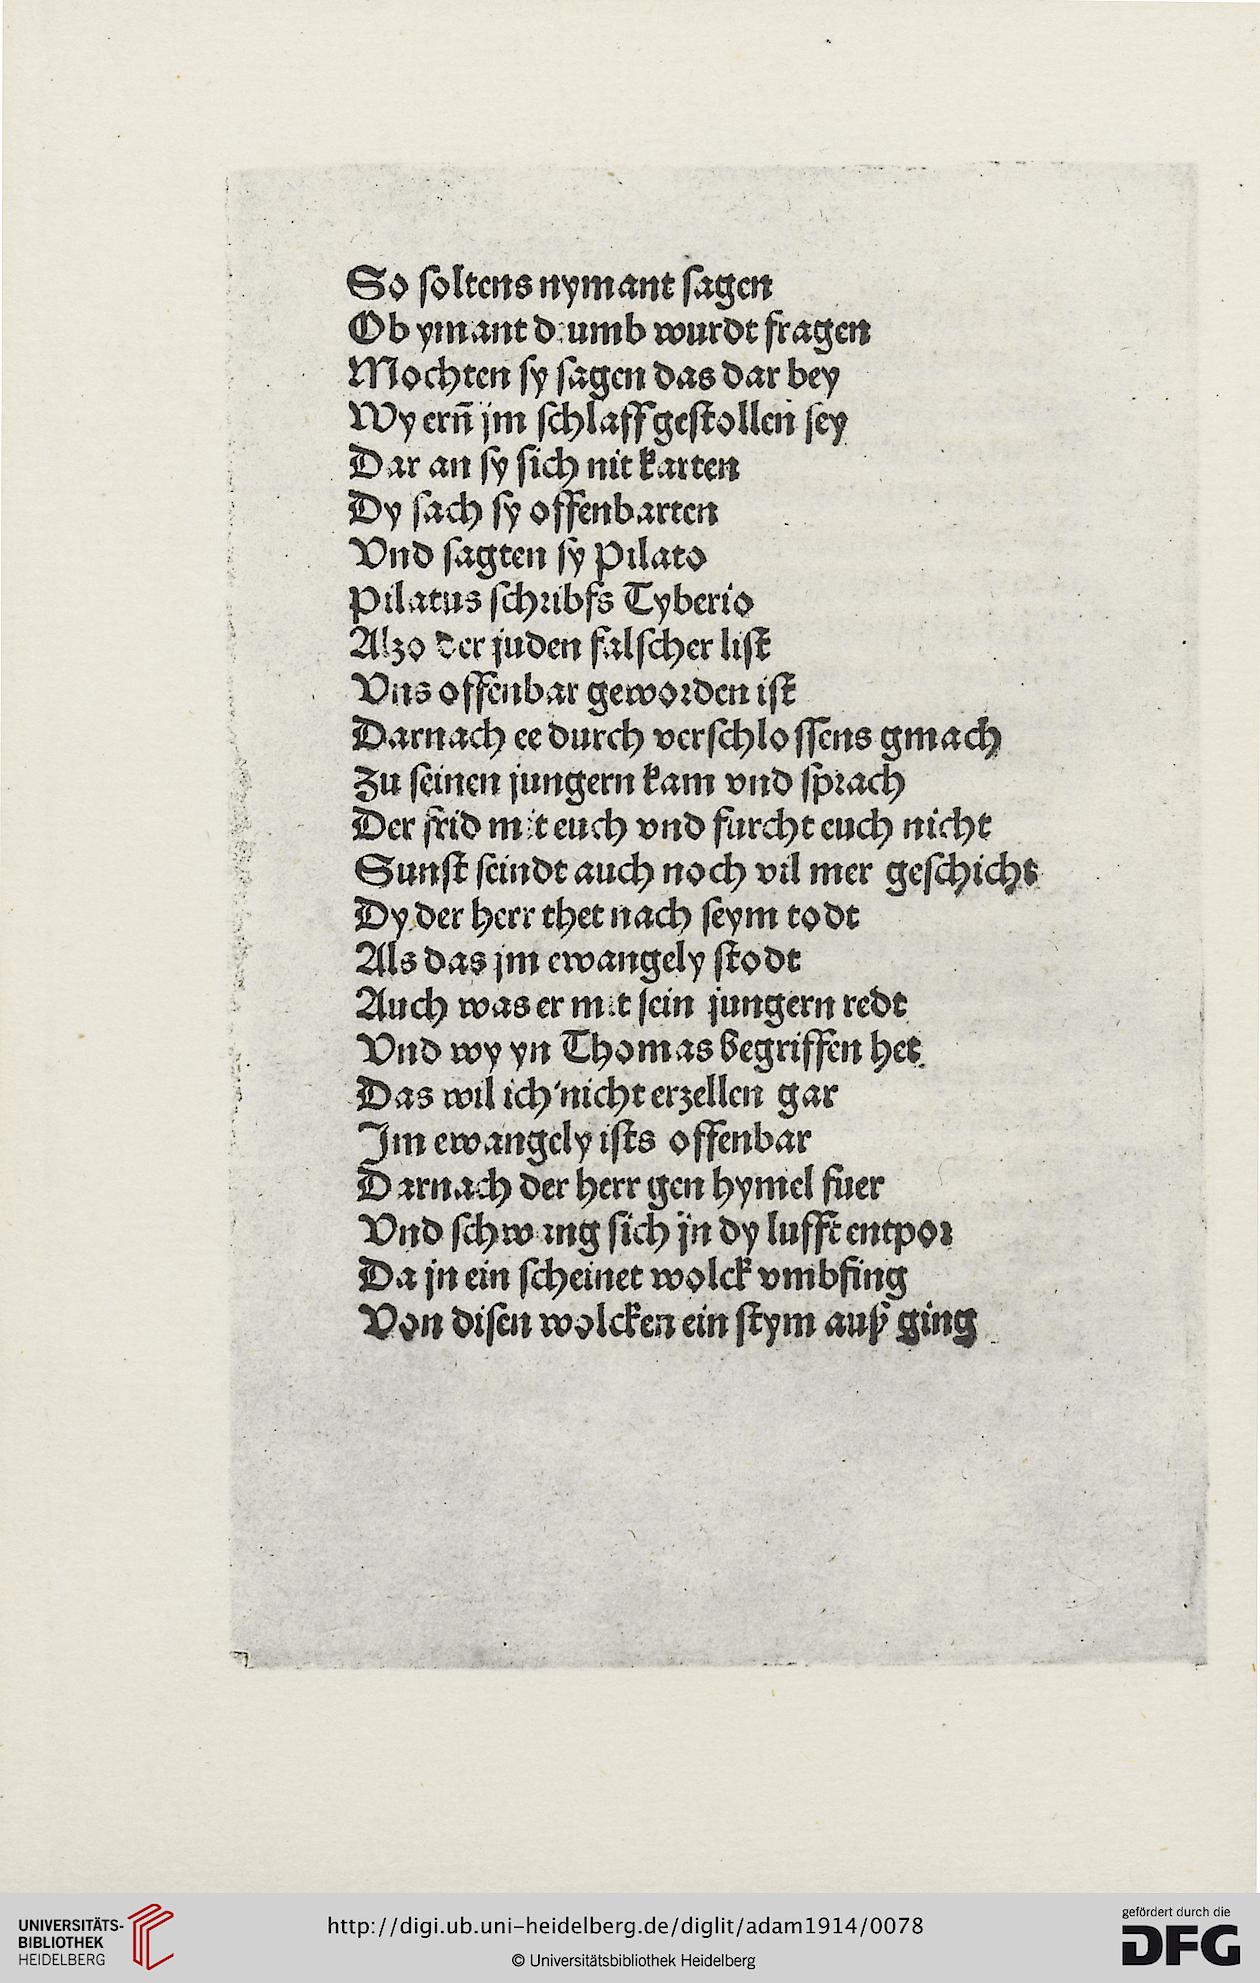 So soltens nymant sagen
Ob ymant drumb wurdt fragen
Mochten sy sagen das dar bey
Wy ern̄ jm schlaff gestollen sey
Dar an sy sich nit karten
Dy sach sy offenbarten
Vnd sagten sy Pilato
Pilatus schribfs Tyberio
Alzo der juden falscher list
Vns offenbar geworden ist
Darnach ee durch verschlossens gmach
Zu seinen jungern kam vnd sprach
Der frid mit euch vnd furcht euch nicht
Sunst seindt auch noch vil mer geschicht
Dy der herr thet nach seym todt
Als das jm ewangely stodt
Auch was er mit sein jungern redt
Vnd wy yn Thomas begriffen het
Das wil ich nicht erzellen gar
Im ewangely ists offenbar
Darnach der herr gen hymel fuer
Vnd schwang sich jn dy lufft entpor
Da jn ein scheinet wolck vmbfing
Von disen wolcken ein stym auß ging
UNIVERSITÄTS-
BIBLIOTHEK
HEIDELBERG
http://digi.ub.uni-heidelberg.de/diglit/adam1914/0078
© Universitätsbibliothek Heidelberg
gefördert durch die
DFG